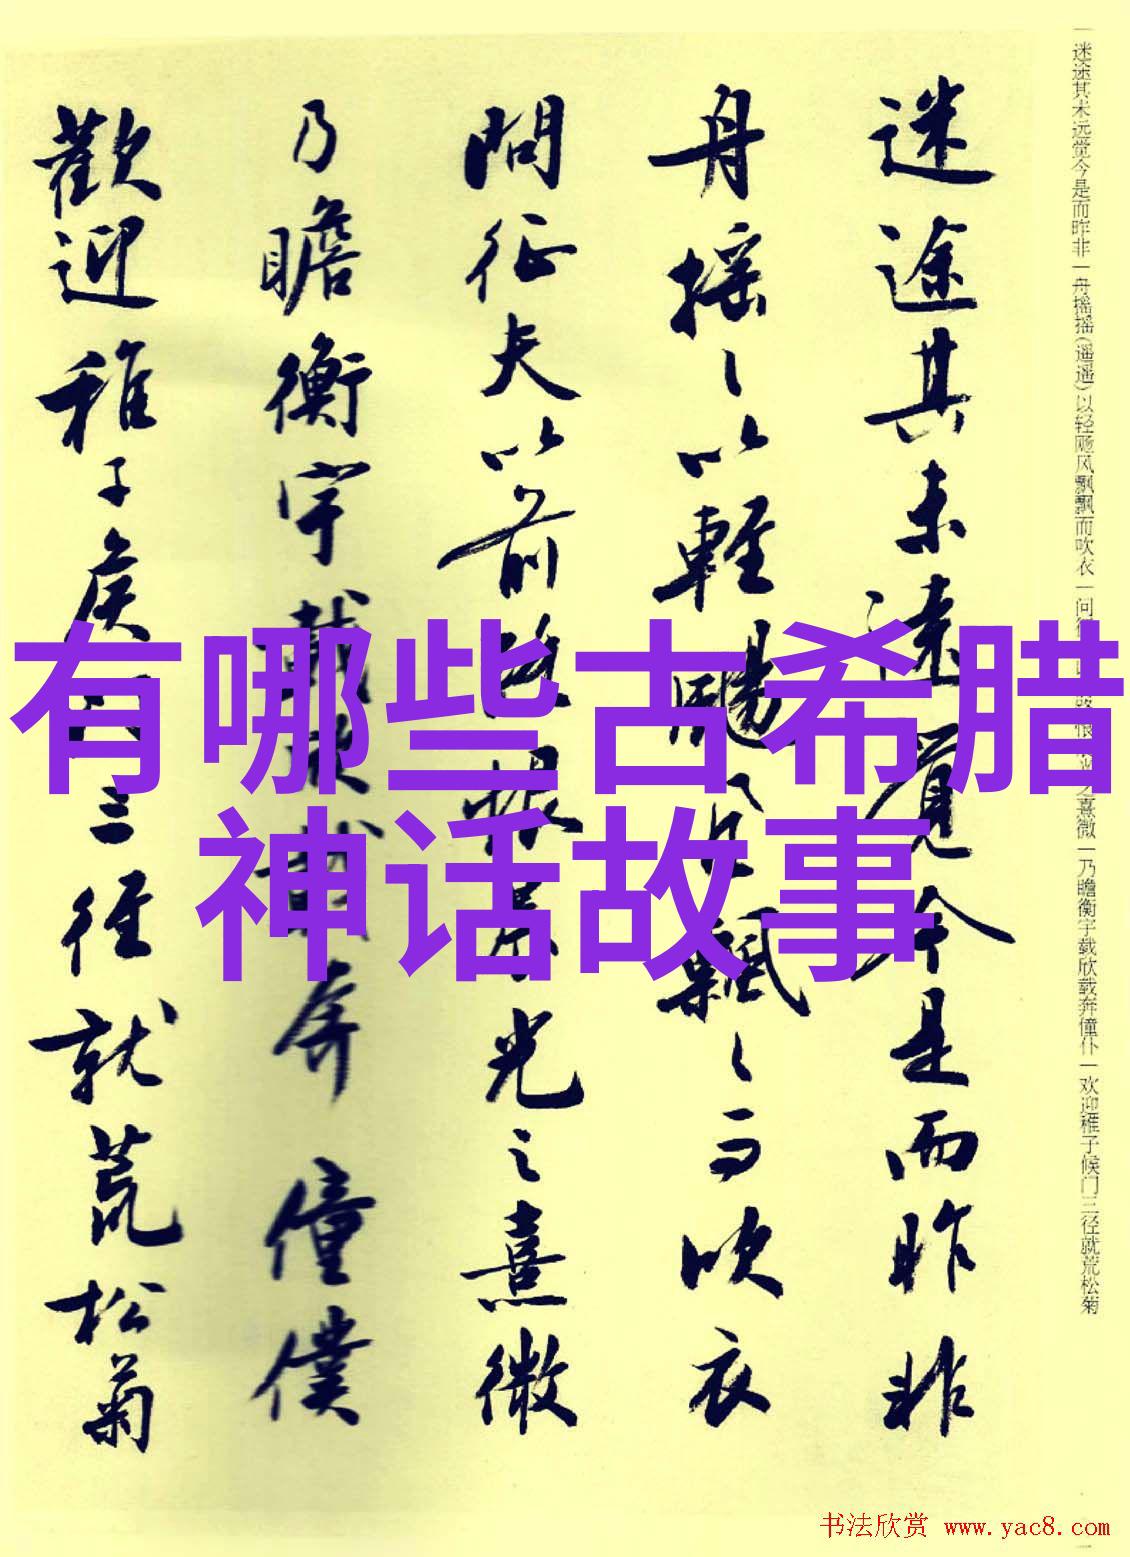 有哪些古希腊
神话故事
迷途其未远觉今是而昨非一舟摇摇(遥遥)以轻飏风飘飘而吹衣一问之熹微一乃瞻衡宇载欣载奔僮仆一欢迎稚子候门三径就荒松菊
迷途其未遠覺今是而昨非
舟摇々以輕颺風飄々而吹衣
問征夫以前路恨晨光之熹微
乃瞻衡宇載欣載奔僮僕
歡迎稚子候門三徑就荒松菊
书法欣赏 www.yac8.com